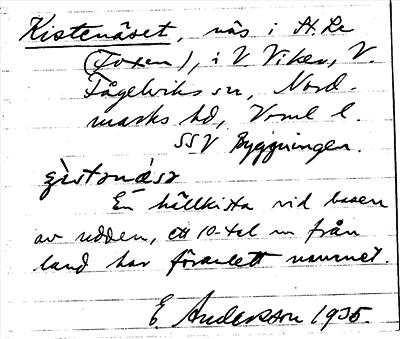 Kistenäset, näs i St. Le
(Foxen), i V. Viker, V.
Fågelviks sn, Nord-
marks hd, Vrml l.
SSV Byggningen.
En hällkista vid basen
av udden, ett 10-tal m från
land har föranlett namnet.
E. Andersson 1935.